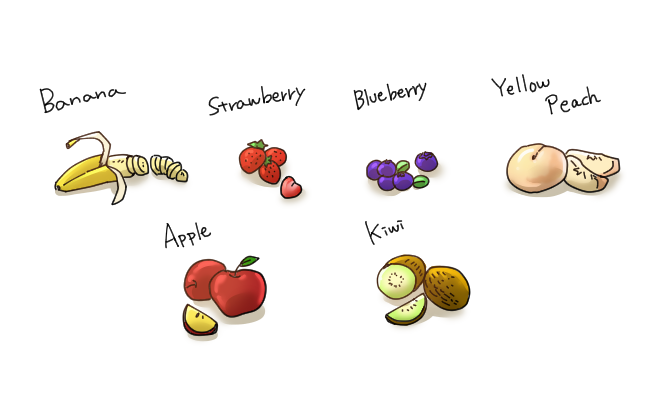 Banana
Strawberry
Blueberry
Yellow
Peach
Apple
Kiwi